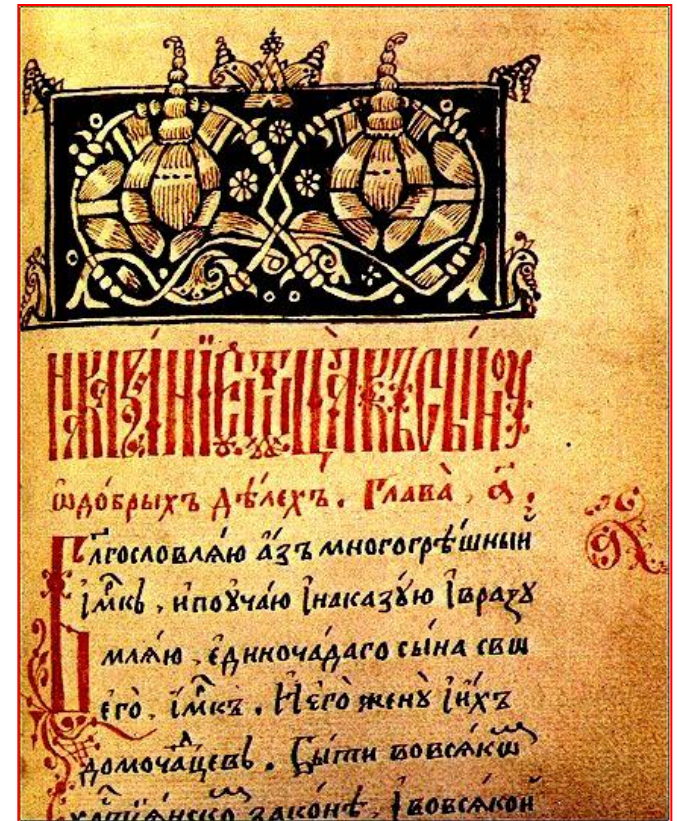 НАКАЗАНІЕ Ѿ ОЦА КЪ СЫНОУ
ѡ до́брыхъ дѣ́лехъ . Глава̀ , а҃ .
Блгословлѧ́ю а́зъ многогрѣ́шныи
і҆мкъ , и поꙋча́ю і҆ наказꙋ́ю і҆ вразꙋ
млѧ́ю , є҆диноча́даго сы́на сво
его̀ . і҆мкъ . И҆ его̀ женꙋ̀ і҆ и́хъ
домоча́дцевъ . Бы́ти во всѧ́ко
хрⷭ҇тїѧ́нско зако́нѣ , І҆ во всѧ́кой